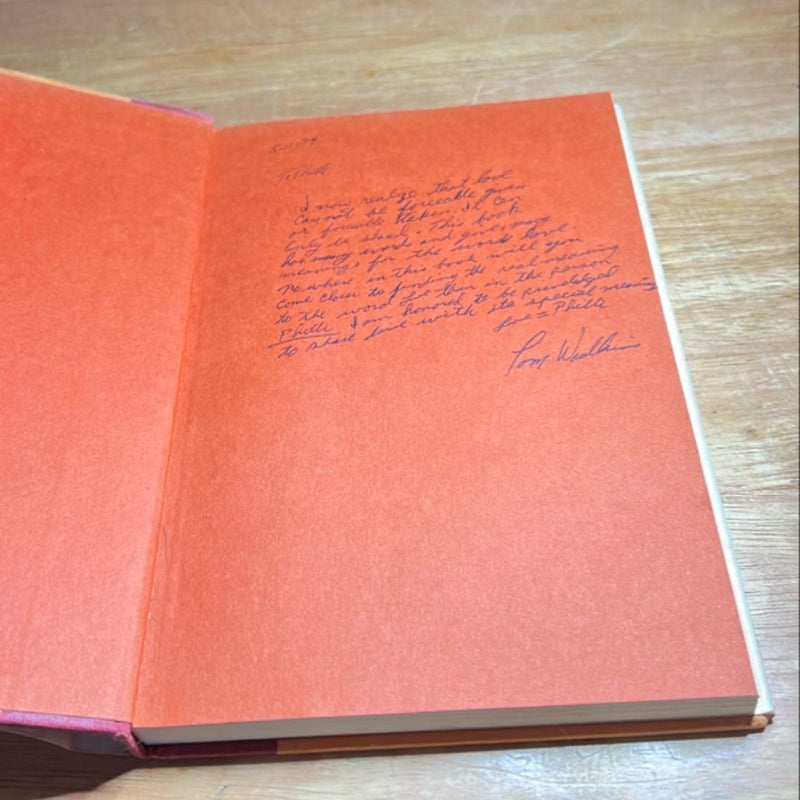 5-11-74
To Phille
I now realize that love
Can not be forceable given
or forceable taken. It Can
Only be shared. This book
has many words and gives many
meanings for the words love.
No where in this book will you
come closer to finding the real meaning
to the word love then in the person
Phille. I am honored to be
to share love with its special meaning
Love to Phille
Tom